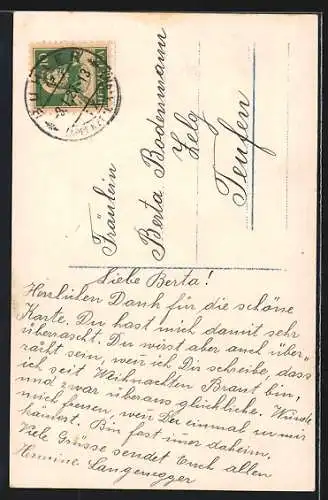 Fräulein
Berta Bodenmann
Zelg
Teufen
Liebe Berta!
Herzlichen Dank für die schöne
Karte. Du hast mich damit sehr
überrascht. Du wirst aber auch über-
rascht sein, wenn ich Dir schreibe, dass
ich seit Weihnachten Braut bin,
und zwar überaus glückliche. Würde
mich freuen, wenn Du einmal zu mir
kämst. Bin fast immer daheim.
Viele Grüsse sendet Euch allen
Hermine Langenegger